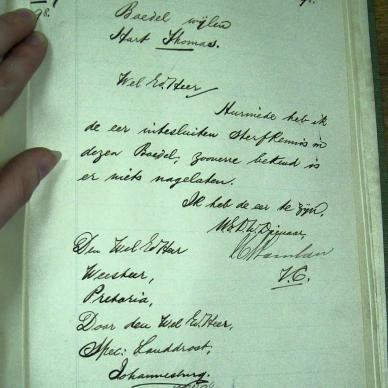 98.
Boedel wijlen
Hart Thomas.
Wel Ed Heer
Hiermede heb ik
de eer intesluiten Sterfkennis in
dezen Boedel, zooverre bekend is
er niets nagelaten.
Ik heb de eer te zijn,
WEd. UEd. Dienaar,
V.C.
Den Wel Ed Heer
Weesheer,
Pretoria,
Door den Wel Ed Heer,
Spec: Landdrost,
Johannesburg.